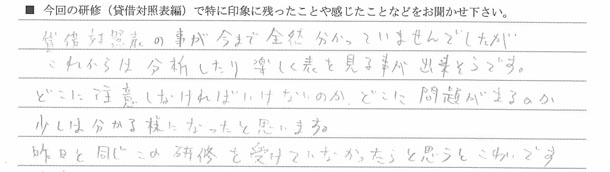 ■ 今回の研修（貸借対照表編）で特に印象に残ったことや感じたことなどをお聞かせ下さい。
貸借対照表の事が今まで全然分かっていませんでしたが
これからは分析したり楽しく表を見る事が出来そうです。
どこに注意しなければいけないのか、どこに問題が有るのか
少しは分かる様になったと思います。
昨日と同じこの研修を受けていなかったらと思うとこわいです